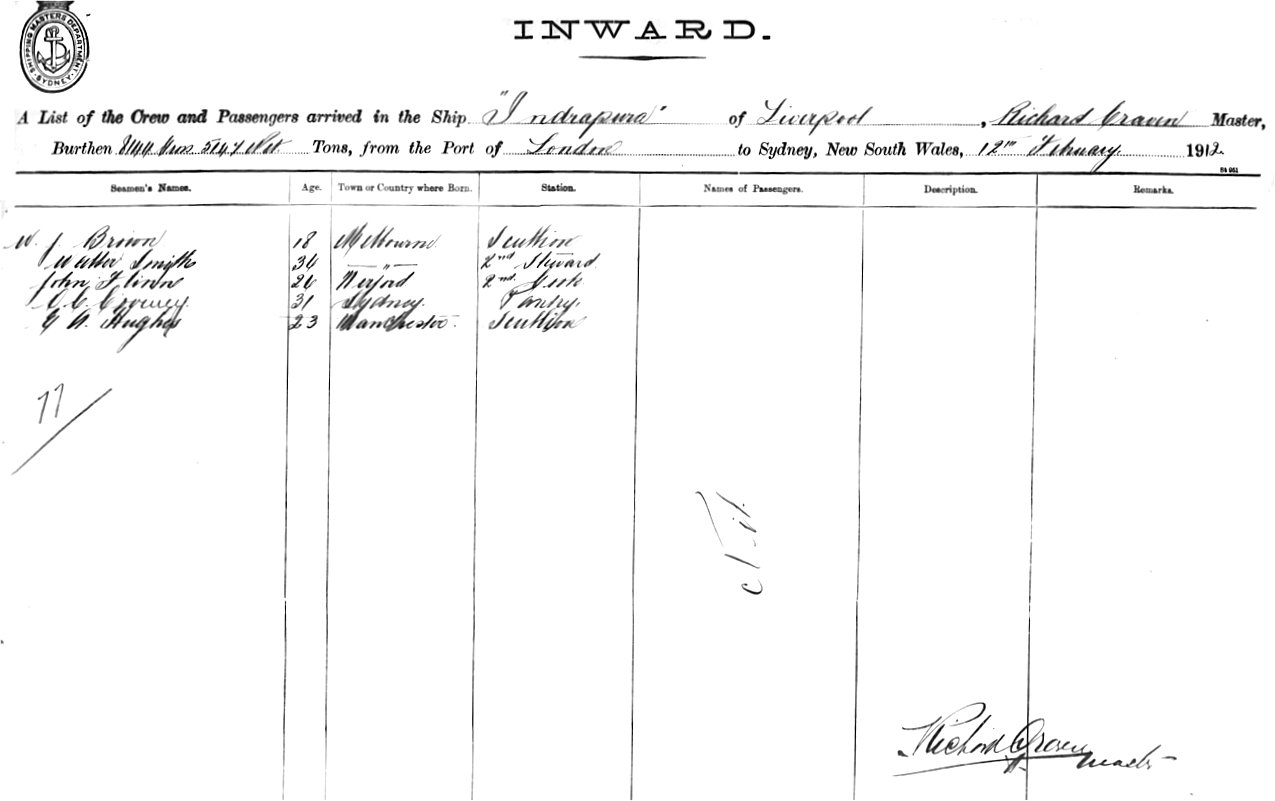 SHIPPING MASTERS DEPARTMENT SYDNEY
INWARD.
A List of the Crew and Passengers arrived in the Ship "Indrapura" of Liverpool, Richard Craven Master,
Burthen 8144 5147 Net Tons, from the Port of London to Sydney, New South Wales, 12th February 1912.
84 951
Seamen's Names. Age. Town or Country where Born. Station. Names of Passengers. Description. Remarks.
W. J. Brown 18 Melbourne Scullion
Walter Smith 34 —"— 2nd Steward
John 26 2nd
31 Sydney. Pantry.
G A. Hughes 23 Manchester. Scullion
77
Nil.
Richard Craven Master